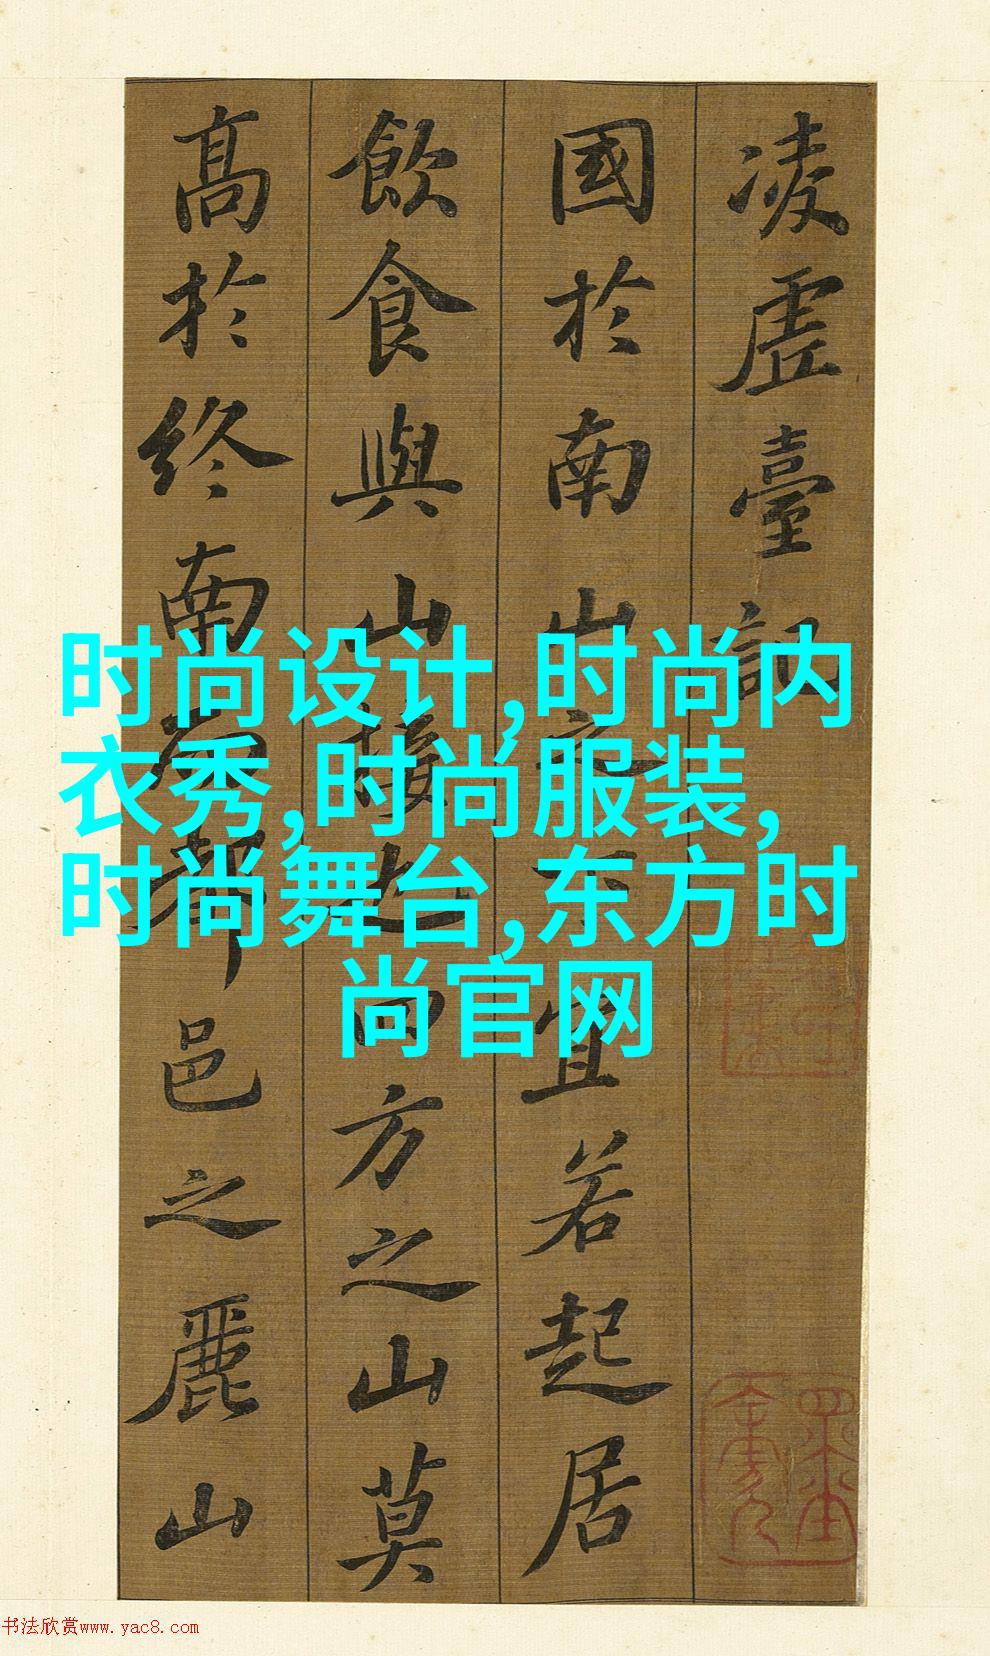 凌虛臺記
國於南山之下宜若起居
飲食與山接也四方之山莫
高於終南而都邑之麗山
时尚设计,时尚内
衣秀,时尚服装,
时尚舞台,东方时
尚官网
书法欣赏www.yac8.com